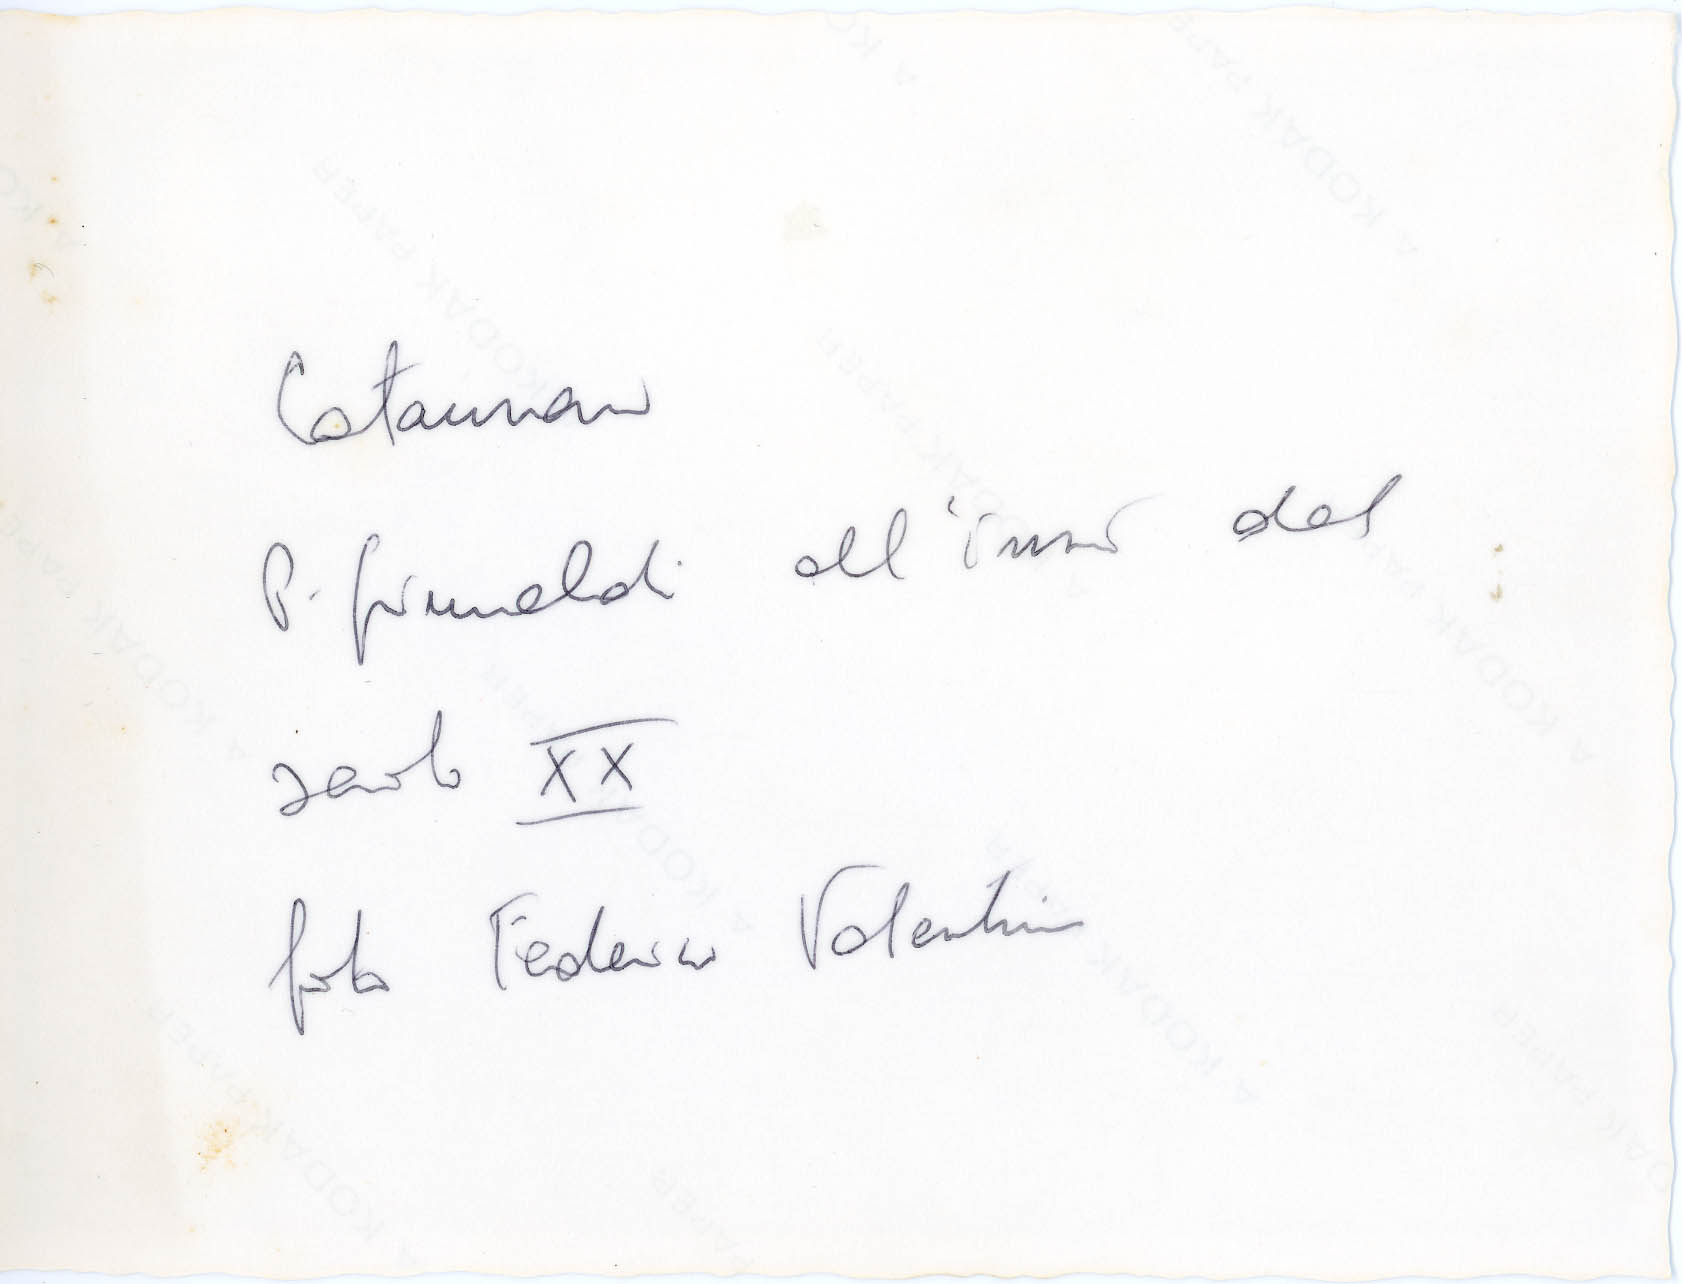 Catanzaro
P. Grimaldi all'inizio del
secolo XX
foto Federico Valentini
A KODAK PAPER
A KODAK PAPER
A KODAK PAPER
A KODAK PAPER
A KODAK PAPER
A KODAK PAPER